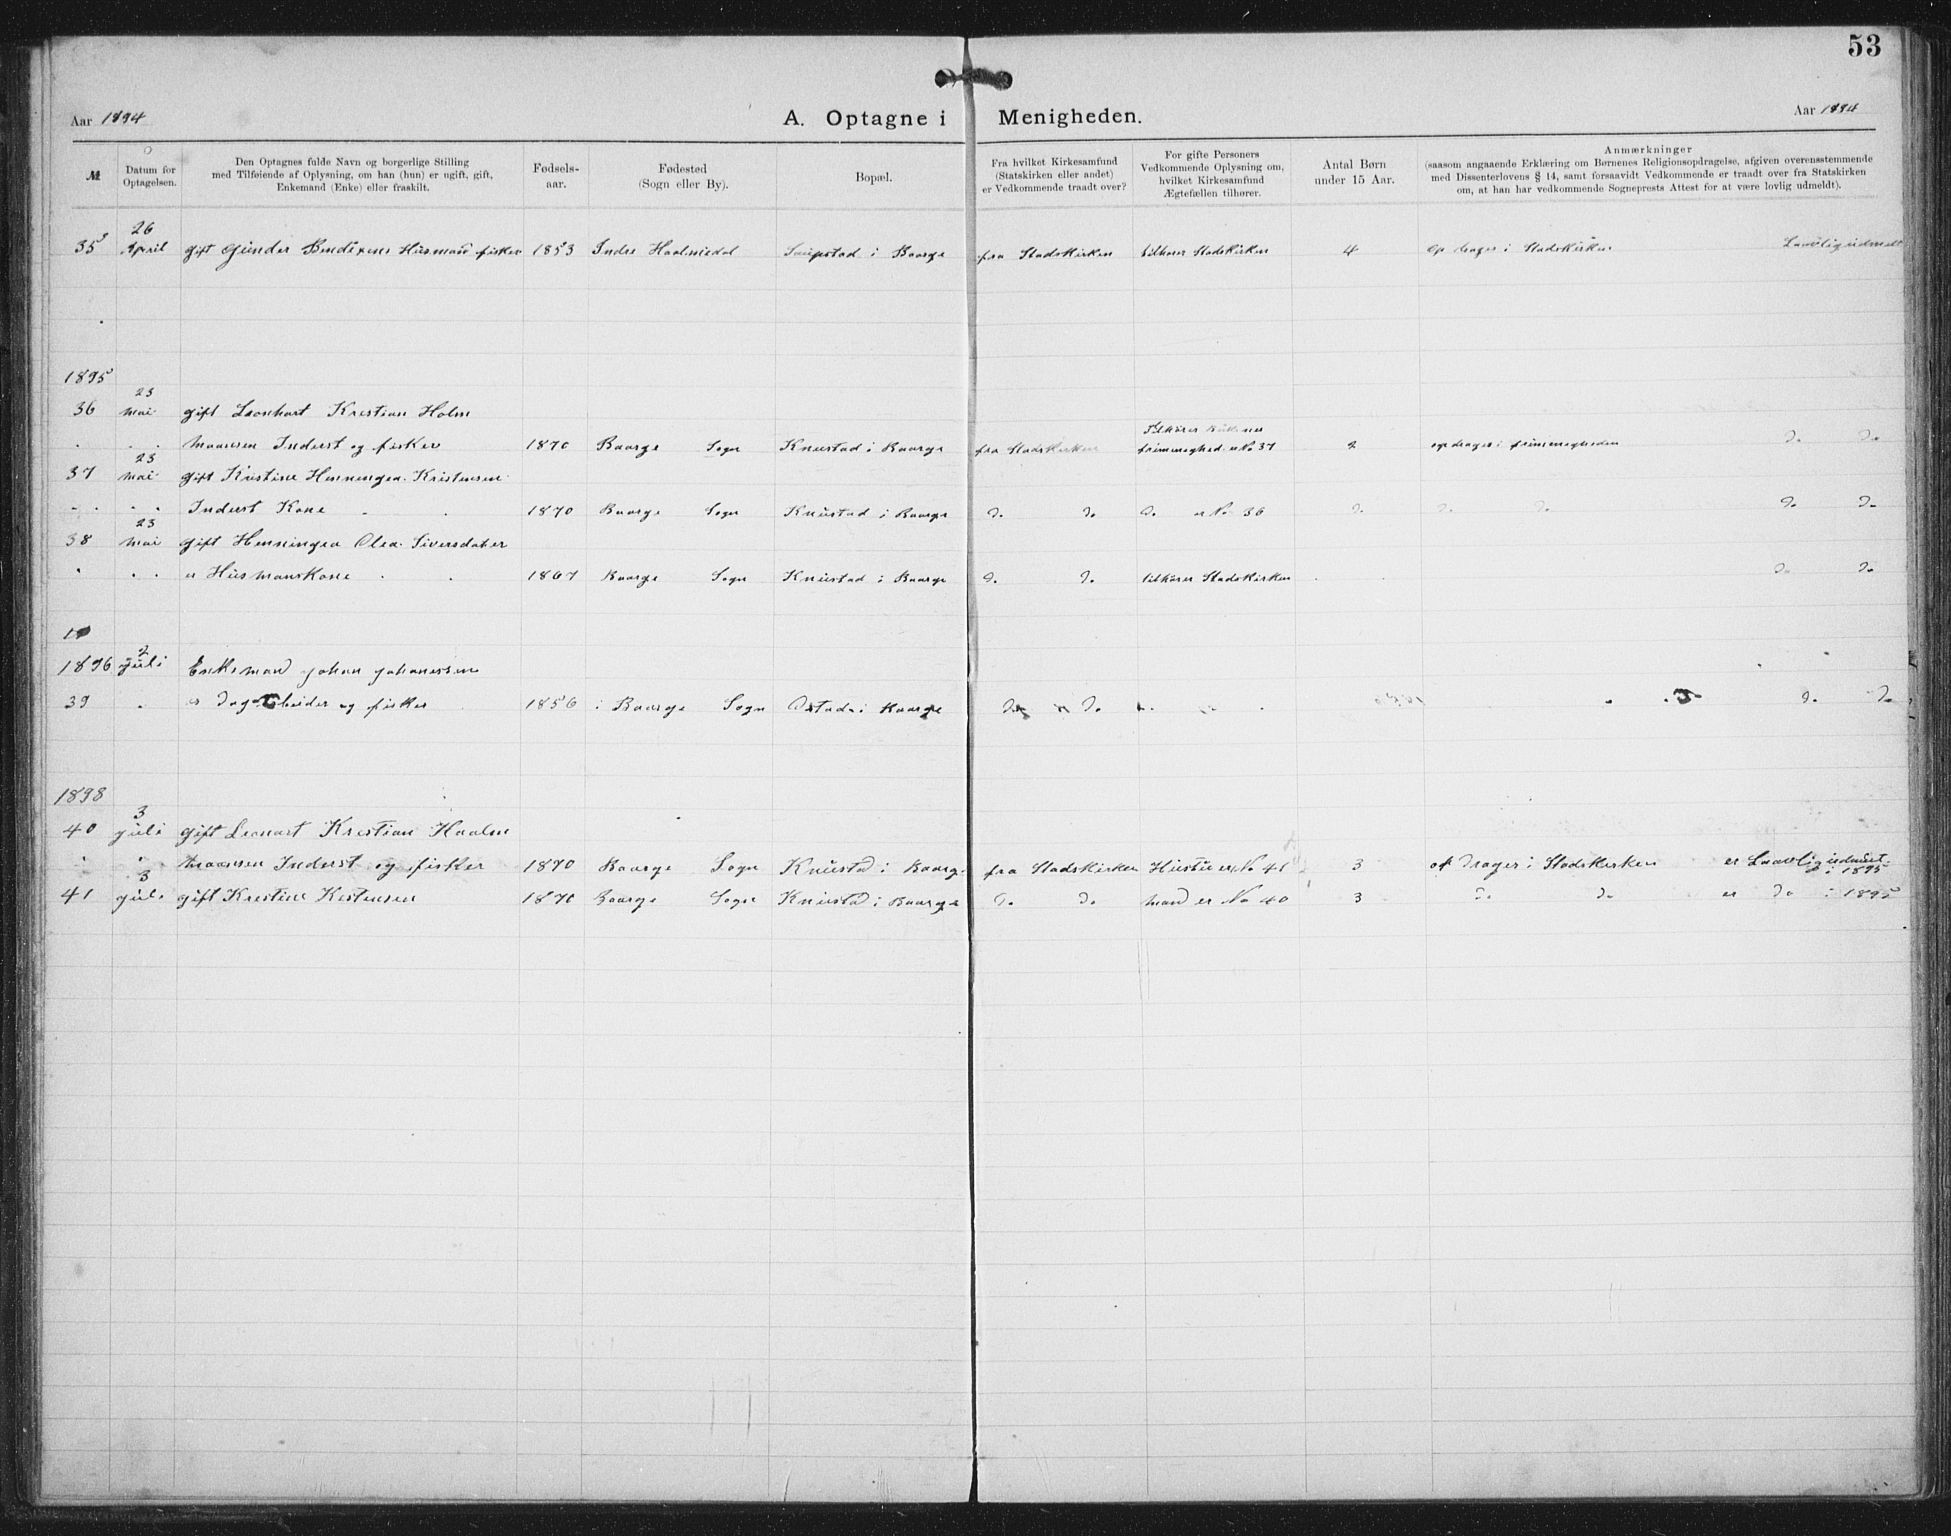 53
Aar 1894 A. Optagne i Menigheden. Aar 1894
№
Datum for
Optagelsen.
Den Optagnes fulde Navn og borgerlige Stilling
med Tilføiende af Oplysning, om han (hun) er ugift, gift,
Enkemand (Enke) eller fraskilt.
Fødsels-
aar.
Fødested
(Sogn eller By).
Bopæl.
Fra hvilket Kirkesamfund
(Statskirken eller andet)
er Vedkommende traadt over?
For gifte Personers
Vedkommende Oplysning om,
hvilket Kirkesamfund
Ægtefællen tilhører.
Antal Børn
under 15 Aar.
Anmærkninger
(saasom angaaende Erklæring om Børnenes Religionsopdragelse, afgiven overensstemmende
med Dissenterlovens § 14, samt forsaavidt Vedkommende er traadt over fra Statskirken
om, at han har vedkommende Sogneprests Attest for at være lovlig udmeldt).
26
35 April gift Gunder Bendixens Husmand fisker 1853 Indre Haalmedal i Baarge fra Stadskirken tilhører Stadskirken 4 op drages i Stadskirken Laavlig udmelt
1895
23
36 mai gift Leonhart Kristian Holm
Maansen Inderst og fisker 1870 Baarge Sogn Knustad i Baarge fra Stadskirken frimenighed er No 37 2 opdrages i frimenigheden Do Do
23
37 mai gift Kristine Henningea Kristensen
Inderst Kone 1870 Baarge Sogn Knustad i Baarge Do Do Do er No 36 Do Do Do Do Do
23
38 mai gift Henningea Olea Siversdater
er Husmanskone 1867 Baarge Sogn Knustad i Baarge Do Do tilhører Stadskirken Do Do
2
1896 Juli Enkemand Johan Johanessen
39 er Dagarbeider og fisker 1856 i Baarge Sogn i Baarge Do Do Do Do
1898
3
40 Juli gift Leonart Kristian Haalm
Maansen Inderst og fisker 1870 Baarge Sogn Knustad i Baarge fra Stadskirken Hustru er No 41 3 op drages i Stadskirken er Laavlig udmelt
3 i 1895
41 Juli gift Krestine Kestensen 1870 Baarge Sogn Knustad i Baarge Do Do mand er No 40 3 Do Do er Do i 1895